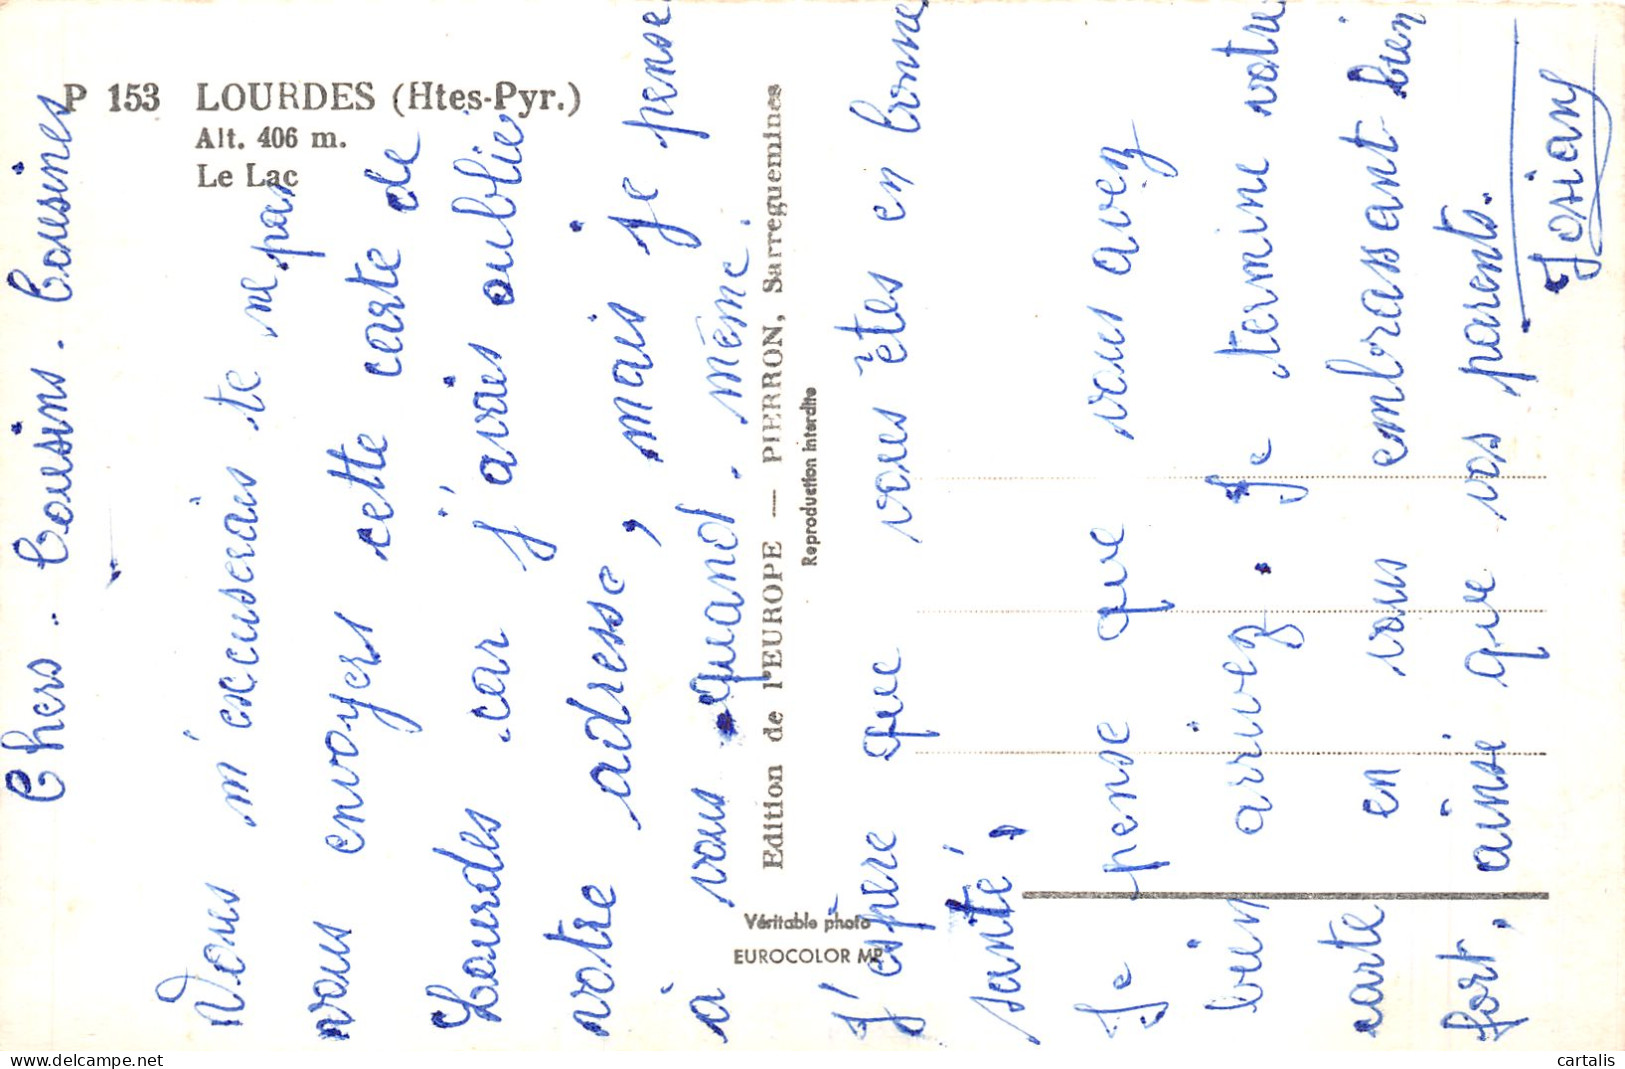 P 153 LOURDES (Htes-Pyr.)
Alt. 406 m.
Le Lac
Edition de l'EUROPE — PIERRON, Sarreguemines
Reproduction interdite
Véritable photo
EUROCOLOR MP
Chers. Cousins. Cousines
Vous m'excuserais te ne pas
vous envoyers cette carte de
Lourdes car j'avais oublié
votre adresse, mais je pense
à vous quand. même.
J'espère que vous êtes en bonne
santé,
Je pense que vous avez
bien arrivez. Je termine votre
carte en vous embrassant bien
fort, ainsi que vos parents.
Josiany
cartalis